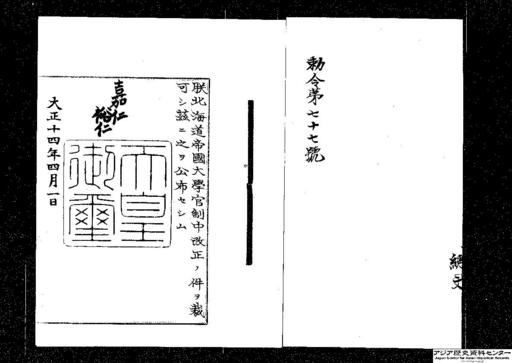 勅令第七十七號
朕北海道帝國大學官制中改正ノ件ヲ裁
可シ茲ニ之ヲ公布セシム
嘉仁
裕仁
天皇
御璽
大正十四年四月一日
アジア歴史資料センター
Japan Center for Asian Historical Records